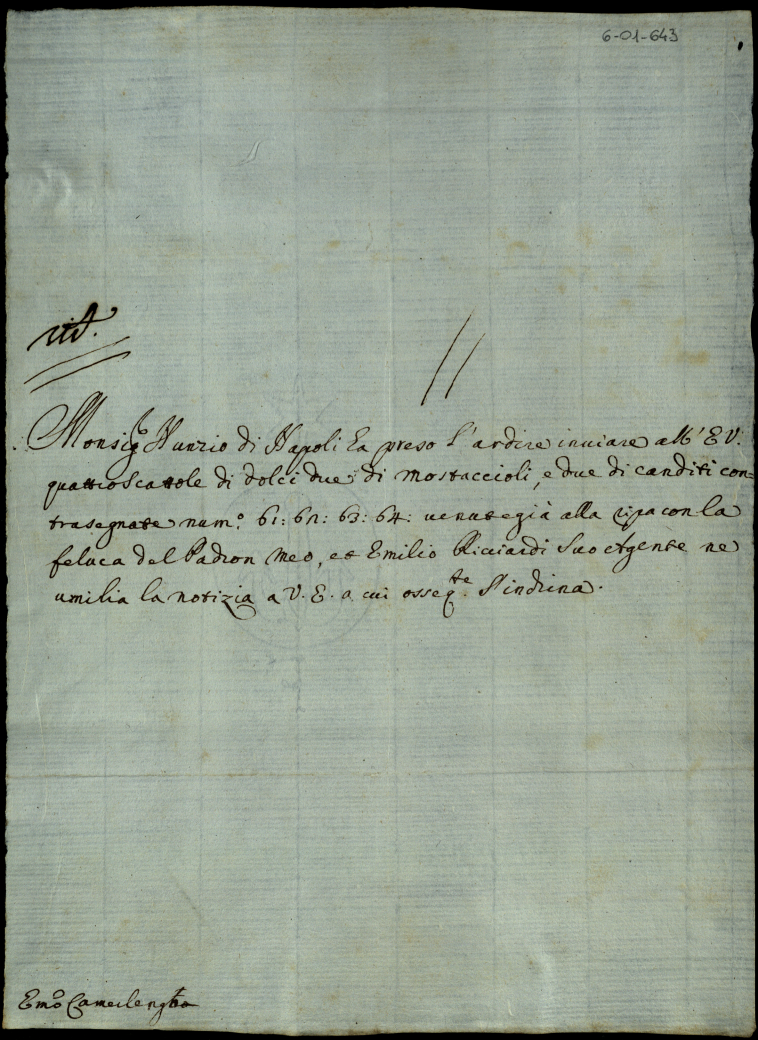 6-01-643
Monsigr Nunzio di Napoli ha preso l'ardire inuiare all' E V.
quattro Scattole di dolci due di mostaccioli, e due di canditi con=
trasegnate num.o 61: 62: 63: 64: uenute già alla ripa con la
feluca del Padron Meo, et Emilio Ricciardi Suo Agente ne
umilia la notizia a V. E. a cui osseq.te S'inchina.
Emo Camerlengho